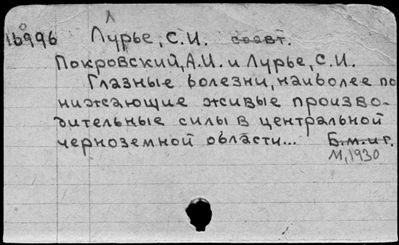 16996 Лурье, С.И. соавт.
Покровский, А.И. и Лурье, С.И.
Глазные болезни, наиболее по
нижающие живые произво-
дительные силы в центральной
черноземной области... Б.м.и г.
М, 1930